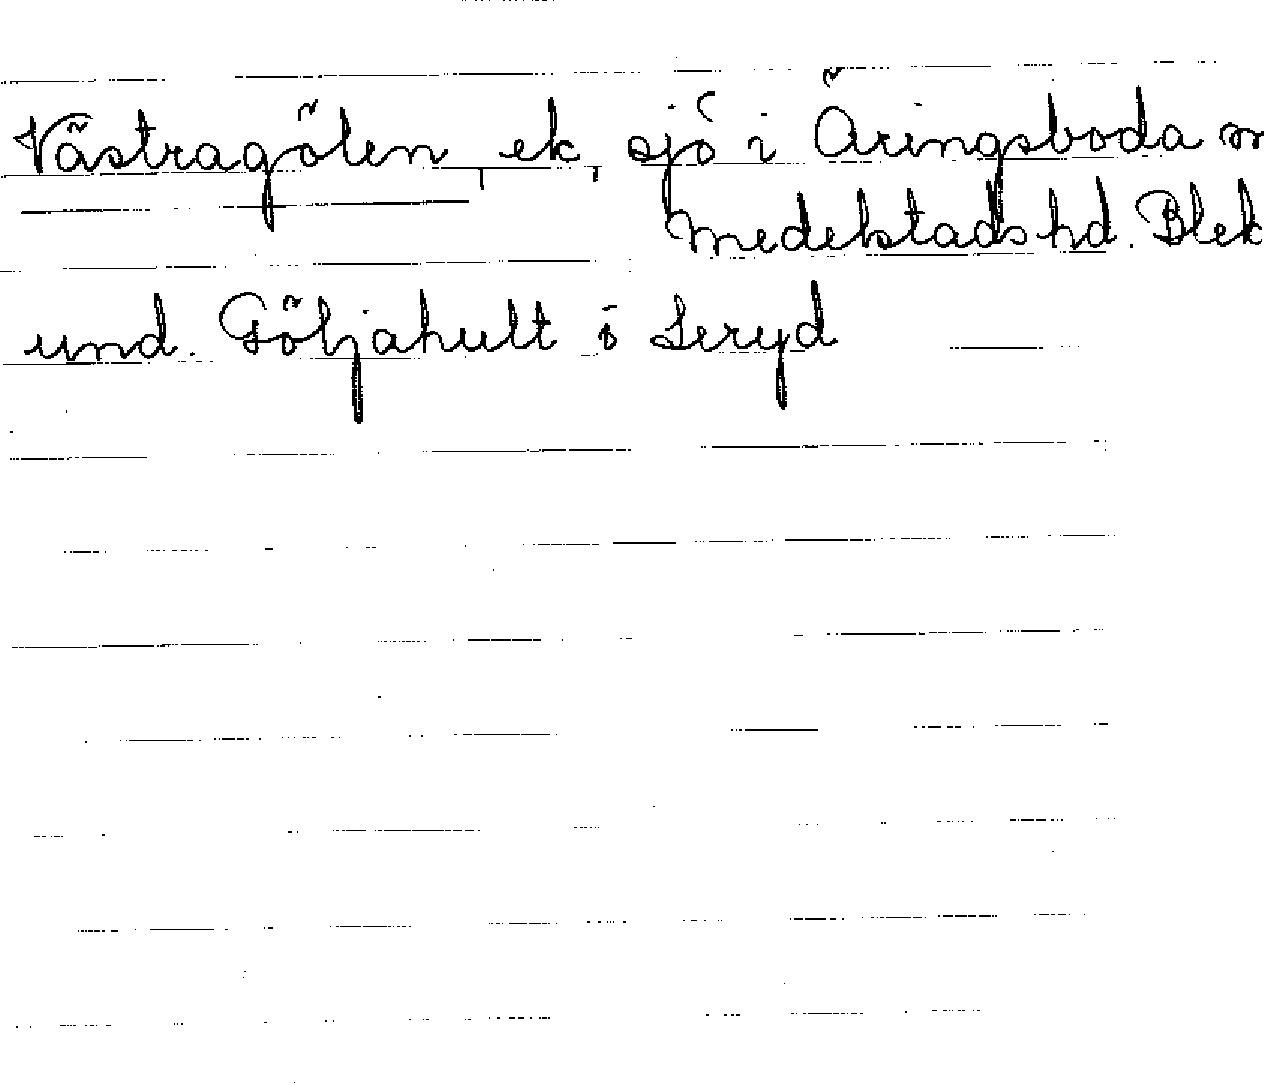 Västragölen, ek, sjö i Äringsboda sn
Medelstads hd. Blek
und. Göljahult i Seryd